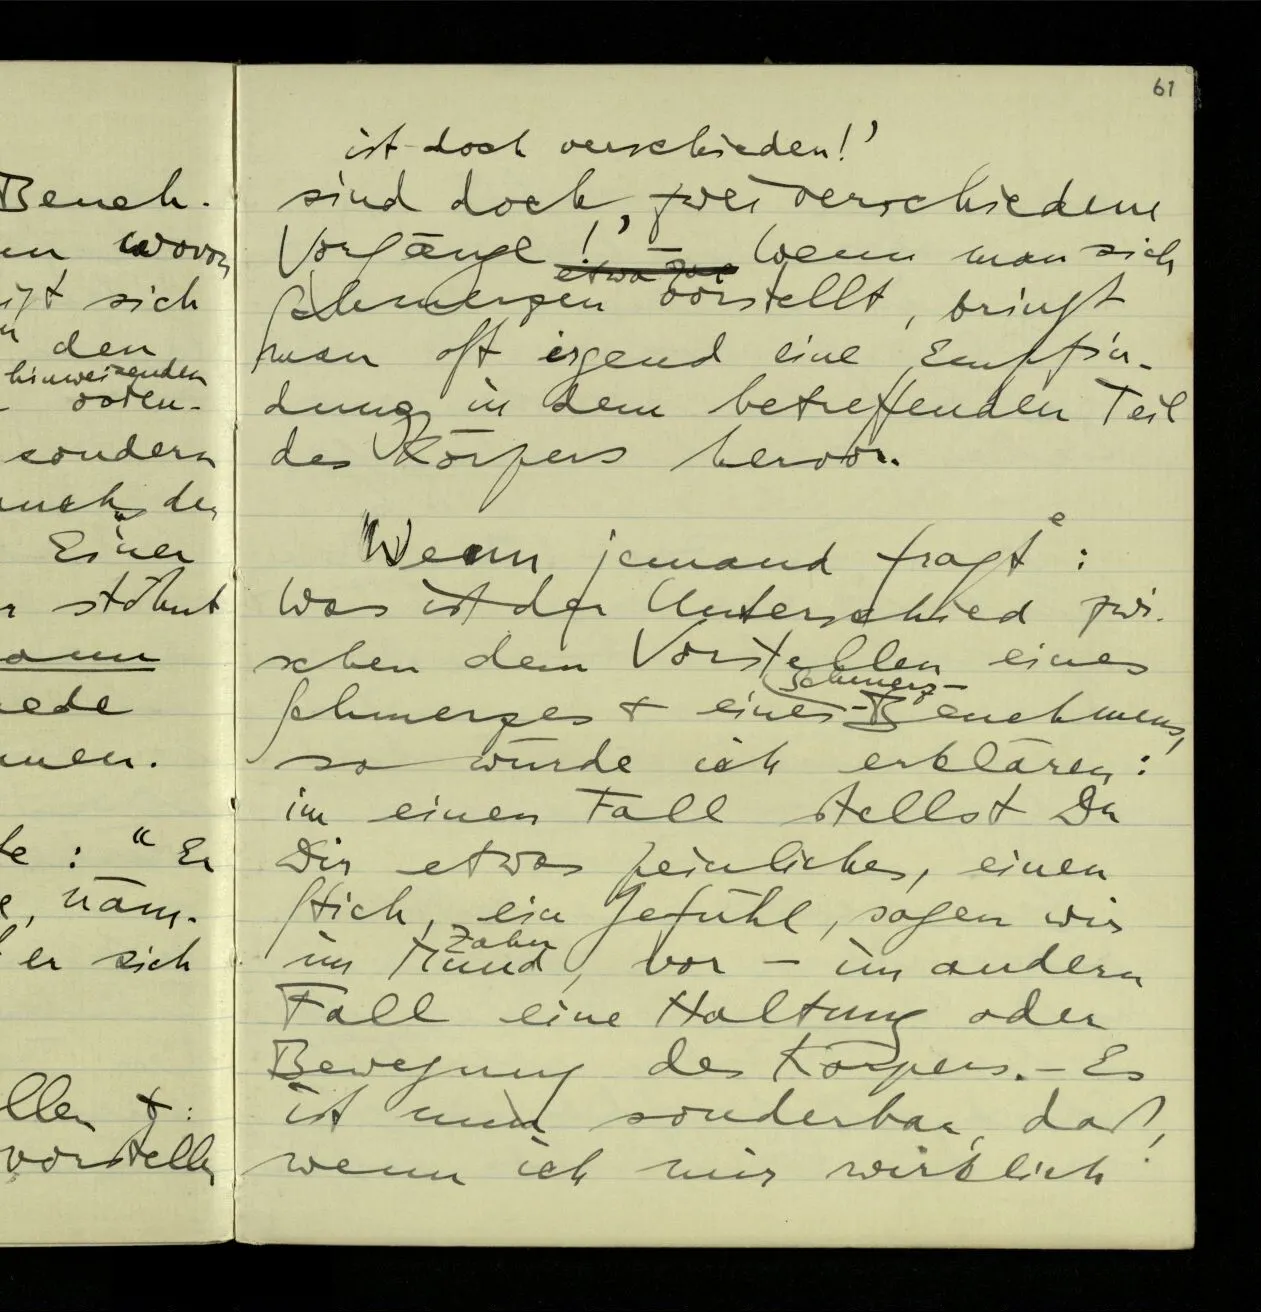 61
ist doch verschieden!’
sind doch zwei verschiedene
Vorgänge!’ – Wenn man sich
etwa
Schmerzen vorstellt, bringt
man oft irgend eine Empfin-
dung in dem betreffenden Teil
des Körpers hervor.
Wenn jemand fragte:
Was ist der Unterschied zwi-
schen dem Vorstellen eines
Schmerz-
Schmerzes & eines -Benehmens,
so würde ich erklären:
im einen Fall stellst Du
Dir etwas peinliches, einen
Stich, ein Gefühl, sagen wir
Zahn
im Mund, vor – im andern
Fall eine Haltung oder
Bewegung des Körpers. – Es
ist nun sonderbar, daß,
wenn ich mir wirklich
Beneh-
wovon
sich
den
hinweisenden
sondern
der
Einer
stöhnt
: “Er
, näm-
er sich
&:
vorstellen